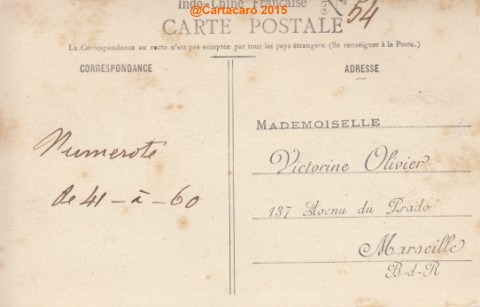 Indo-Chine Française
@Cartacaro 2015
54
CARTE POSTALE
La Correspondance au recto n'est pas acceptée par tous les pays étrangers. (Se renseigner à la Poste.)
CORRESPONDANCE
ADRESSE
Numerote
de 41-à-60
MADEMOISELLE
Victorine Olivier
137 Avenu du Prado
Marseille
B-d-R